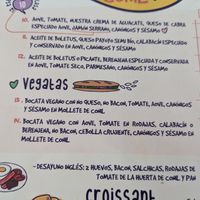 10. AOVE, TOMATE, NUESTRA CREMA DE AGUACATE, QUESO DE CABRA
ESPECIADO AOVE, JAMÓN SERRANO, CANÓNIGOS Y SÉSAMO
11. ACEITE DE BOLETUS, QUESO PAYOYO SEMI BIO, CALABACÍN ESPECIADO
Y CONSERVADO EN AOVE, CANÓNIGOS Y SÉSAMO
12. ACEITE DE BOLETUS O PICANTE, BERENJENA ESPECIADA Y CONSERVADA
EN AOVE, TOMATE SECO, PARMESANO, CANÓNIGOS Y SÉSAMO
Vegatas
13. BOCATA VEGANO CON NO QUESO, NO BACON, TOMATE, AOVE, CANÓNIGOS
Y SÉSAMO EN MOLLETE DE COML
14. BOCATA VEGANO CON AOVE, TOMATE EN RODAJAS, CALABACÍN O
BERENJENA, NO BACON, CEBOLLA CRUJIENTE, CANÓNIGOS Y SÉSAMO EN
MOLLETE DE COML
- DESAYUNO INGLÉS: 2 HUEVOS, BACON, SALCHICAS, RODAJAS DE
TOMATE DE LA HUERTA DE COML Y PAN
croissant